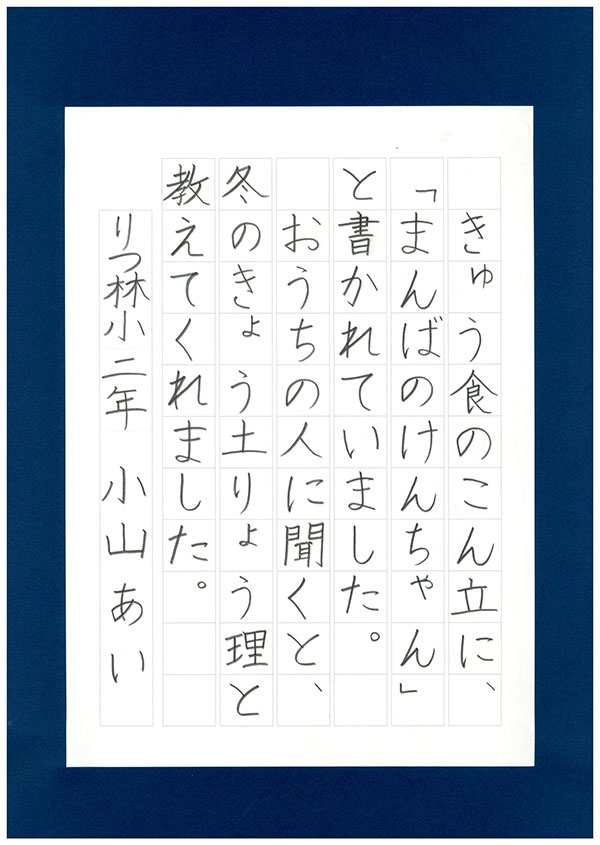 きゅう食のこん立に、
「まんばのけんちゃん」
と書かれていました。
おうちの人に聞くと、
冬のきょう土りょう理と
教えてくれました。
りつ林小二年 小山あい